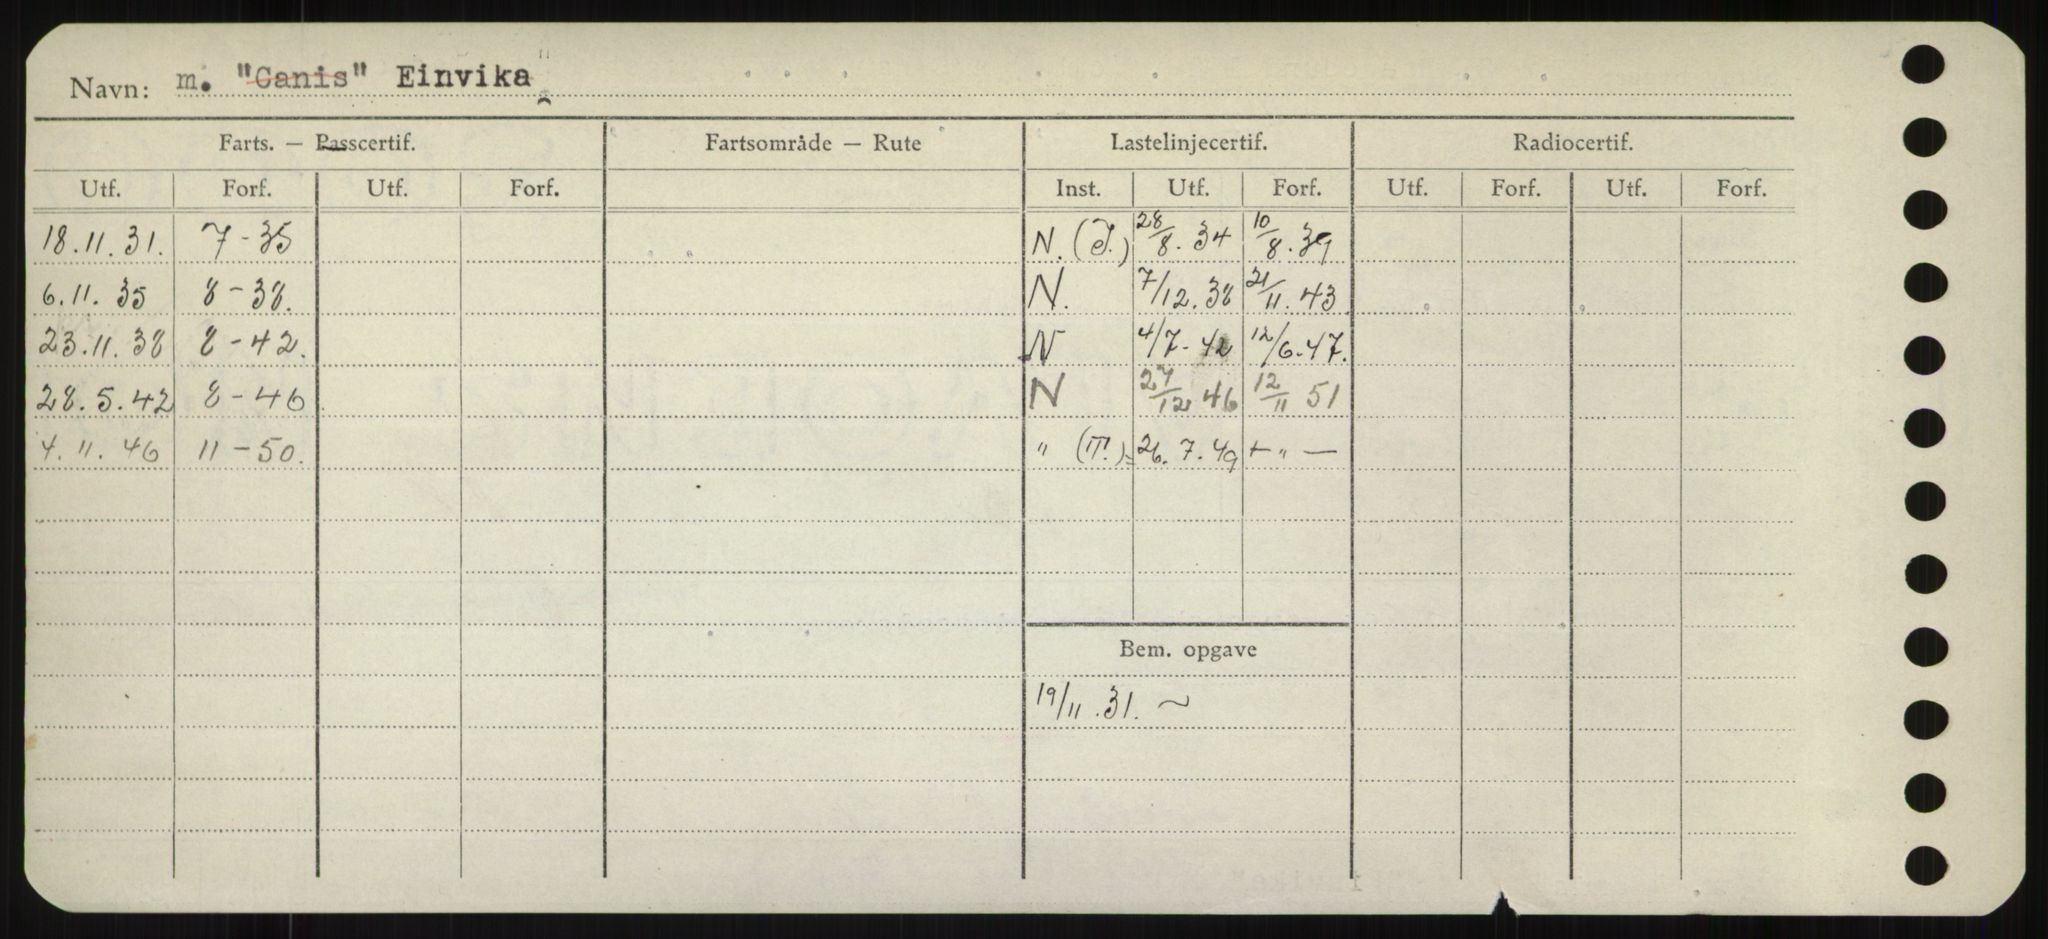 Navn: m. "Canis" Einvika"
Farts. — Passcertif. Fartsområde — Rute Lastelinjecertif. Radiocertif.
Utf. Forf. Utf. Forf. Inst. Utf. Forf. Utf. Forf. Utf. Forf.
18.11.31. 7-35 N. (I.) 28/8.34 10/8.39
6.11.35 8-38. N. 7/12.38 21/11.43
23.11.38 8-42. N 4/7-42 12/6.47.
28.5.42 8-46 N 27/12 46 12/11 51
4.11.46 11-50. " (T.) 26.7.49 — " —
Bem. opgave
19/11.31. ~